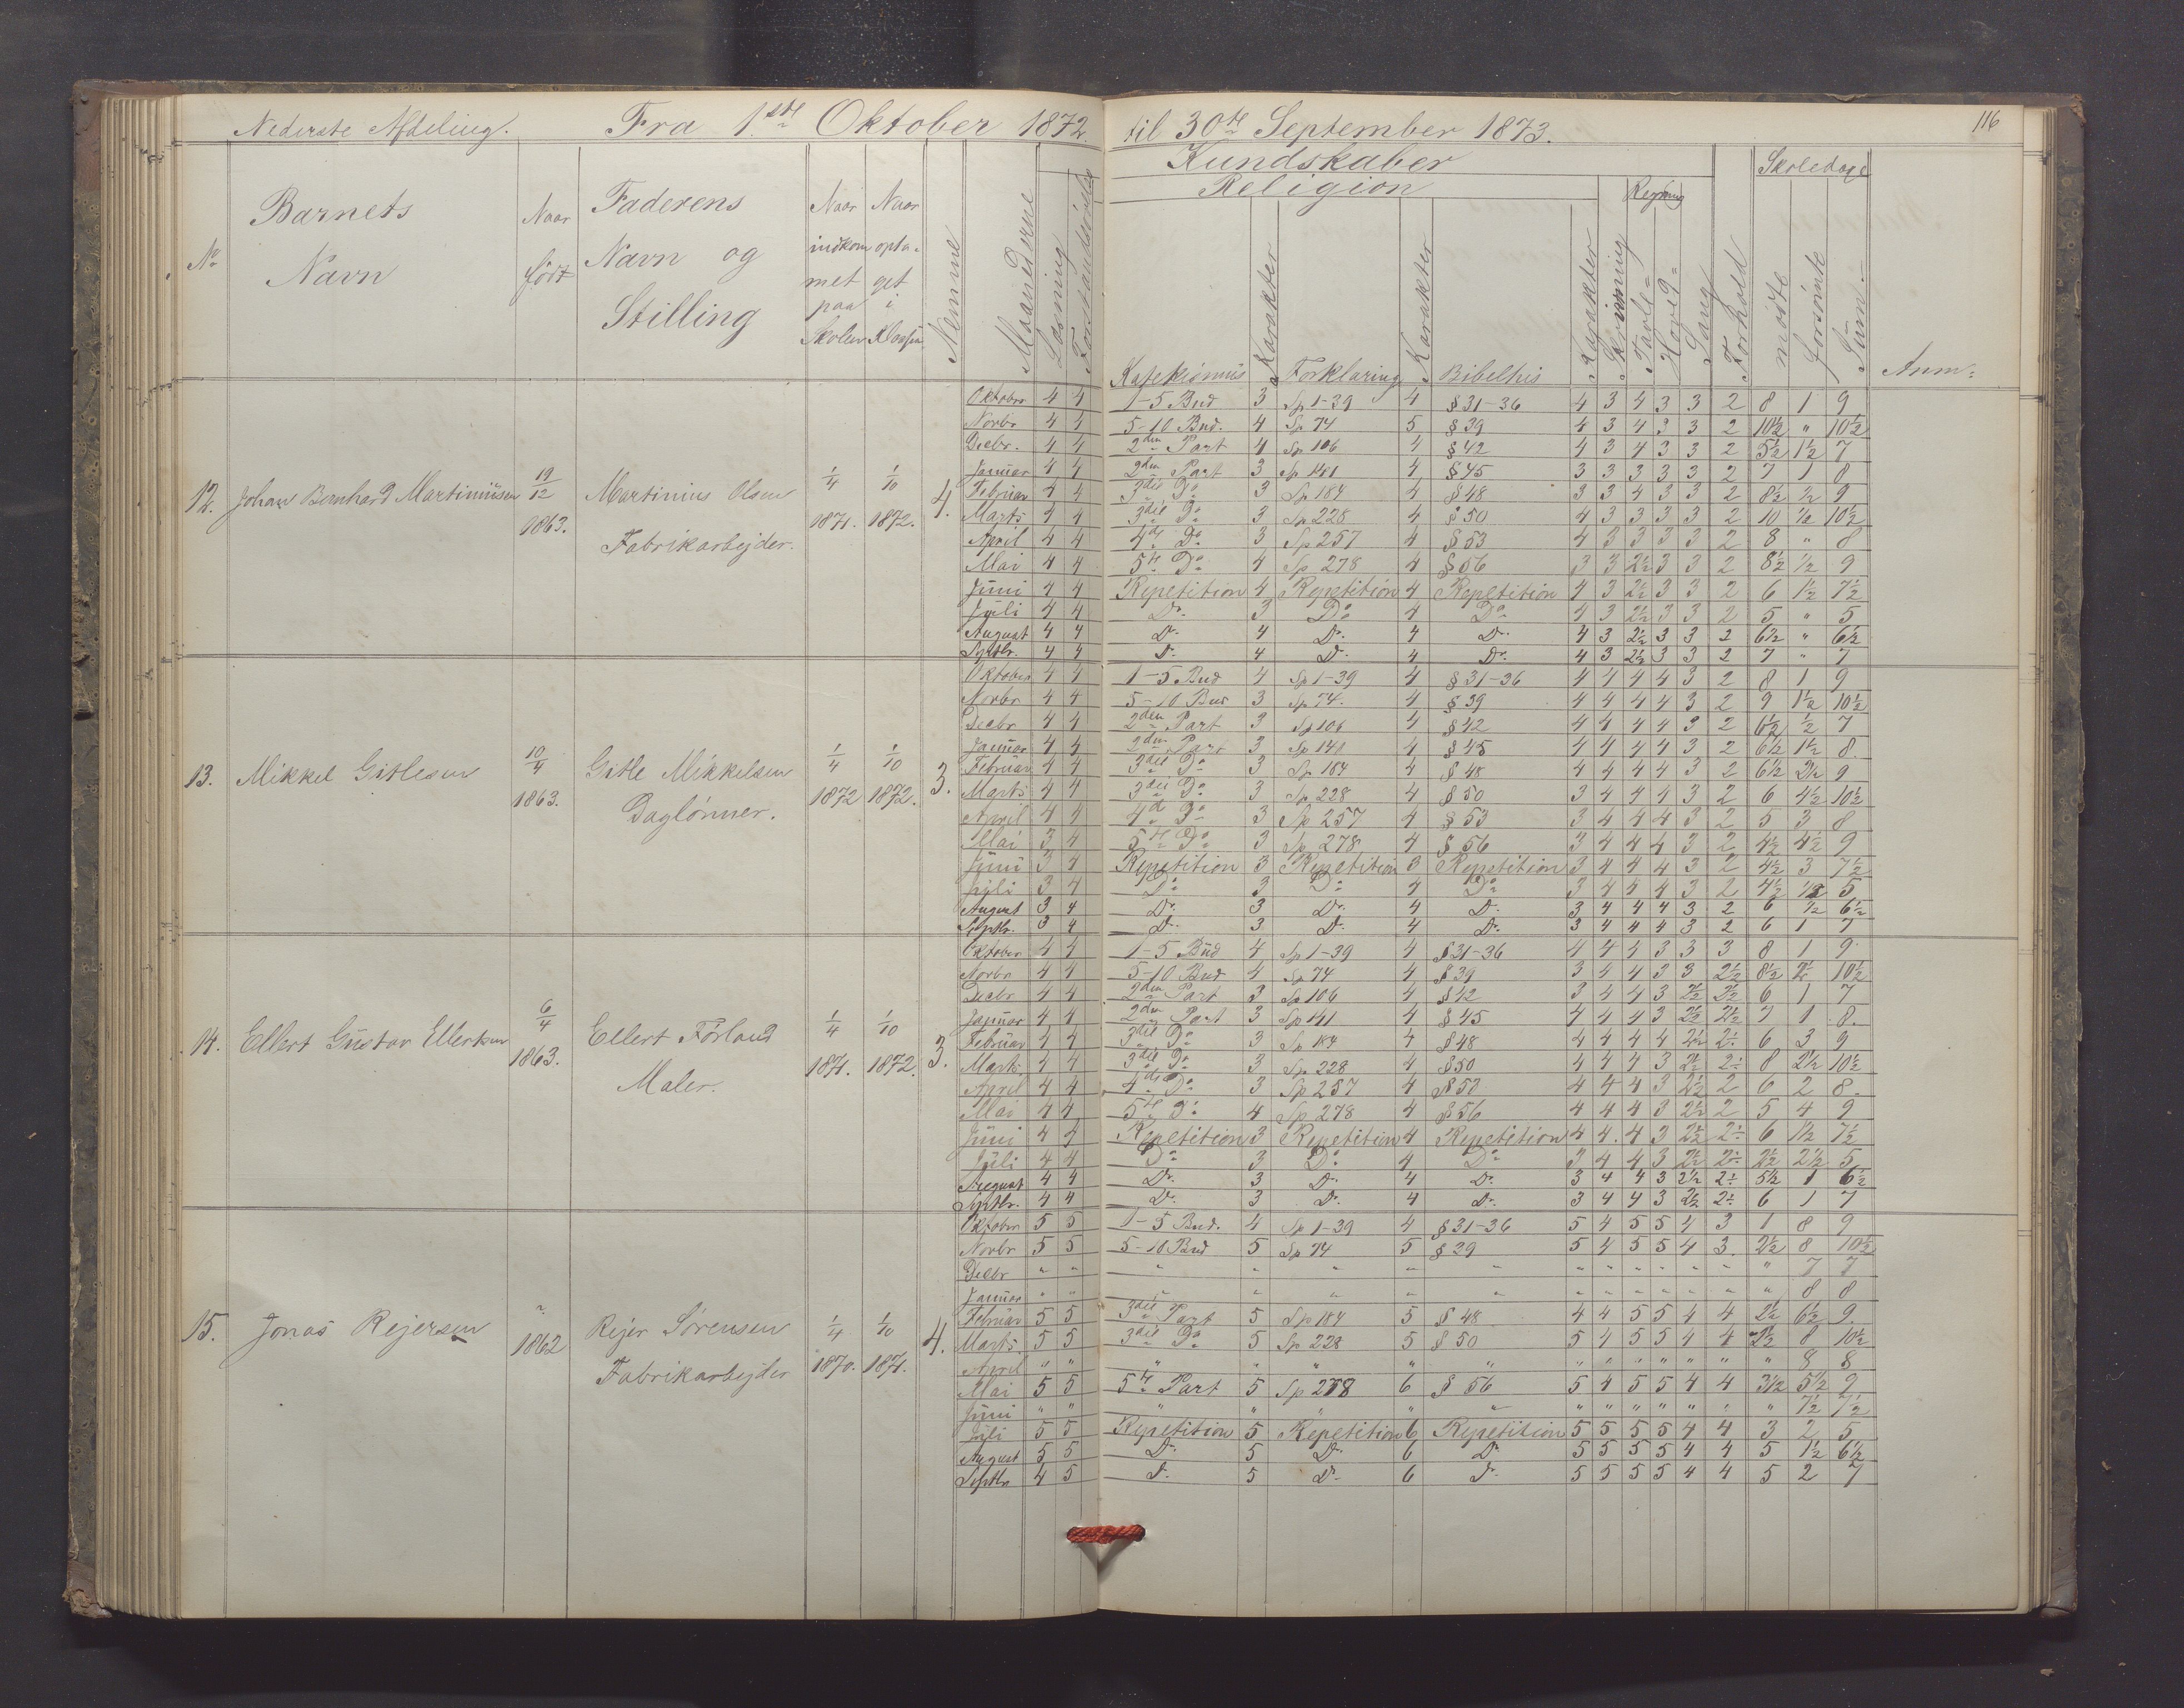 Nederste Afdeling. Fra 1.ste Oktober 1872. til 30te September 1873. 116
Kundskaber Skoledage
Religion Regning
No Barnets Navn Naar født Faderens Navn og Stilling Naar indkommet paa Skolen Naar optaget i Klassen Nemme Maanederne Læsning Forstandsøvelse Katekismus Karakter Forklaring Karakter Bibelhis Karakter Skrivning Tavle= Hoved= Sang Forhold mødte forsømte Sum Anm:
12. Johan Bernhard Martiniusen 19/12 1863. Martinius Olsen Fabrikarbejder. 1/4 1871. 1/10 1872. 4.
Oktober 4 4 1-5 Bud 3 Sp 1-39 4 § 31-36 4 3 4 3 3 2 8 1 9
Novbr 4 4 5-10 Bud. 4 Sp 74 5 § 39 4 3 4 3 3 2 10½ " 10½
Decbr. 4 4 2den Part 4 Sp 106 4 § 42 4 3 4 3 3 2 5½ 1½ 7
Januar 4 4 2den Part 3 Sp 141 4 § 45 3 3 3 3 3 2 7 1 8
Februar 4 4 3die Do 3 Sp 184 4 § 48 3 3 4 3 3 2 8½ ½ 9
Marts 4 4 3die Do 3 Sp 228 4 § 50 4 3 3 3 3 2 10 ½ 10½
April 4 4 4de Do 3 Sp 257 4 § 53 4 3 3 3 3 2 8 " 8
Mai 4 4 5te Do 4 Sp 278 4 § 56 3 3 2½ 3 3 2 8½ ½ 9
Juni 4 4 Repetition 4 Repetition 4 Repetition 4 3 2½ 3 3 2 6 1½ 7½
Juli 4 4 Do 3 Do 4 Do 4 3 2½ 3 3 2 5 " 5
August 4 4 Do 4 Do 4 Do 4 3 2½ 3 3 2 6½ " 6½
Septbr. 4 4 Do 4 Do 4 Do 4 3 2½ 3 3 2 7 " 7
13. Mikkel Gitlesen 10/4 1863. Gitle Mikkelsen Daglønner. 1/4 1872 1/10 1872. 3.
Oktober 4 4 1-5 Bud 4 Sp 1-39 4 § 31-36 4 4 4 4 3 2 8 1 9
Novbr 4 4 5-10 Bud 3 Sp 74. 4 § 39 4 4 4 4 3 2 9 1½ 10½
Decbr 4 4 2den Part 3 Sp 106 4 § 42 4 4 4 4 3 2 6½ ½ 7
Januar 4 4 2den Part 3 Sp 141 4 § 45 4 4 4 4 3 2 6½ 1½ 8.
Februar 4 4 3die Do 3 Sp 184 4 § 48 4 4 4 4 3 2 6½ 2½ 9
Marts 4 4 3die Do 3 Sp 228 4 § 50 3 4 4 4 3 2 6 4½ 10½
April 4 4 4de Do 3 Sp 257 4 § 53 3 4 4 4 3 2 5 3 8
Mai 3 4 5te Do 3 Sp 278 4 § 56 3 4 4 4 3 2 4½ 4½ 9
Juni 3 4 Repetition 3 Repetition 3 Repetition 3 4 4 4 3 2 4½ 3 7½
Juli 3 4 Do 3 Do 4 Do 3 4 4 4 3 2 4½ ½ 5
August 3 4 Do 3 Do 4 Do 3 4 4 4 3 2 6 ½ 6½
Septbr. 3 4 Do 3 Do 4 Do 3 4 4 4 3 2 6 1 7
14. Ellert Gustav Ellertsen 6/4 1863. Ellert Førland Maler. 1/4 1871. 1/10 1872. 3.
Oktober 4 4 1-5 Bud 4 Sp 1-39 4 § 31-36 4 4 4 3 3 3 8 1 9
Novbr 4 4 5-10 Bud 4 Sp 74 4 § 39 3 4 4 3 3 2½ 8½ 2 10½
Decbr 4 4 2den Part 3 Sp 106 4 § 42 3 4 4 3 2½ 2½ 6 1 7
Januar 4 4 2den Part 3 Sp 141 4 § 45 4 4 4 3 2½ 2½ 7 1 8.
Februar 4 4 3die Do 3 Sp 184 4 § 48 4 4 4 4 2½ 2½ 6 3 9
Marts 4 4 3die Do 3 Sp 228 4 § 50 4 4 4 3 2½ 2½ 8 2½ 10½
April 4 4 4de Do 3 Sp 257 4 § 53 4 4 4 3 2½ 2 6 2 8.
Mai 4 4 5te Do 4 Sp 278 4 § 56 4 4 4 3 2½ 2 5 4 9
Juni 4 4 Repetition 3 Repetition 4 Repetition 4 4. 4 3 2½ 2½ 6 1½ 7½
Juli 4 4 Do 3 Do 4 Do 3 4 4 3 2½ 2½ 2½ 2½ 5
August 4 4 Do 3 Do 4 Do 3 4 4 3 2½ 2½ 5½ 1 6½
Septbr. 4 4 Do 3 Do 4 Do 3 4 4 3 2½ 2½ 6 1 7
15. Jonas Rejersen ? 1862 Rejer Sørensen Fabrikarbejder 1/4 1870. 1/10 1871. 4.
Oktober 5 5 1-5 Bud. 4 Sp 1-39 4 § 31-36 5 4 5 5 4 3 1 8 9
Novbr 5 5 5-10 Bud 5 Sp 74 5 § 39 5 4 5 5 4 3. 2½ 8 10½
Decbr " " " " " " " " " " " " " " 7 7
Januar " " " " " " " " " " " " " " 8 8
Februar 5 5 3die Part 5 Sp 184 5 § 48 4 4 5 5 4 4 2½ 6½ 9.
Marts. 5 5 3die Do 5 Sp 228 5 § 50 5 4 5 5 4 4 2½ 8 10½
April " " " " " " " " " " " " " " 8 8
Mai 5 5 5te Part 5 Sp 278 6 § 56 5 4 5 5 4 4 3½ 5½ 9
Juni " " " " " " " " " " " " " " 7½ 7½
Juli 5 5 Repetition 5 Repetition 6 Repetition 5 5 5 5 4 4 3 2 5
August 5 5 Do 5 Do 6 Do 5 5 5 5 4 4 5 1½ 6½
Septbr 4 5 Do 5 Do 6 Do 5 5 5 5 4 4 5 2 7